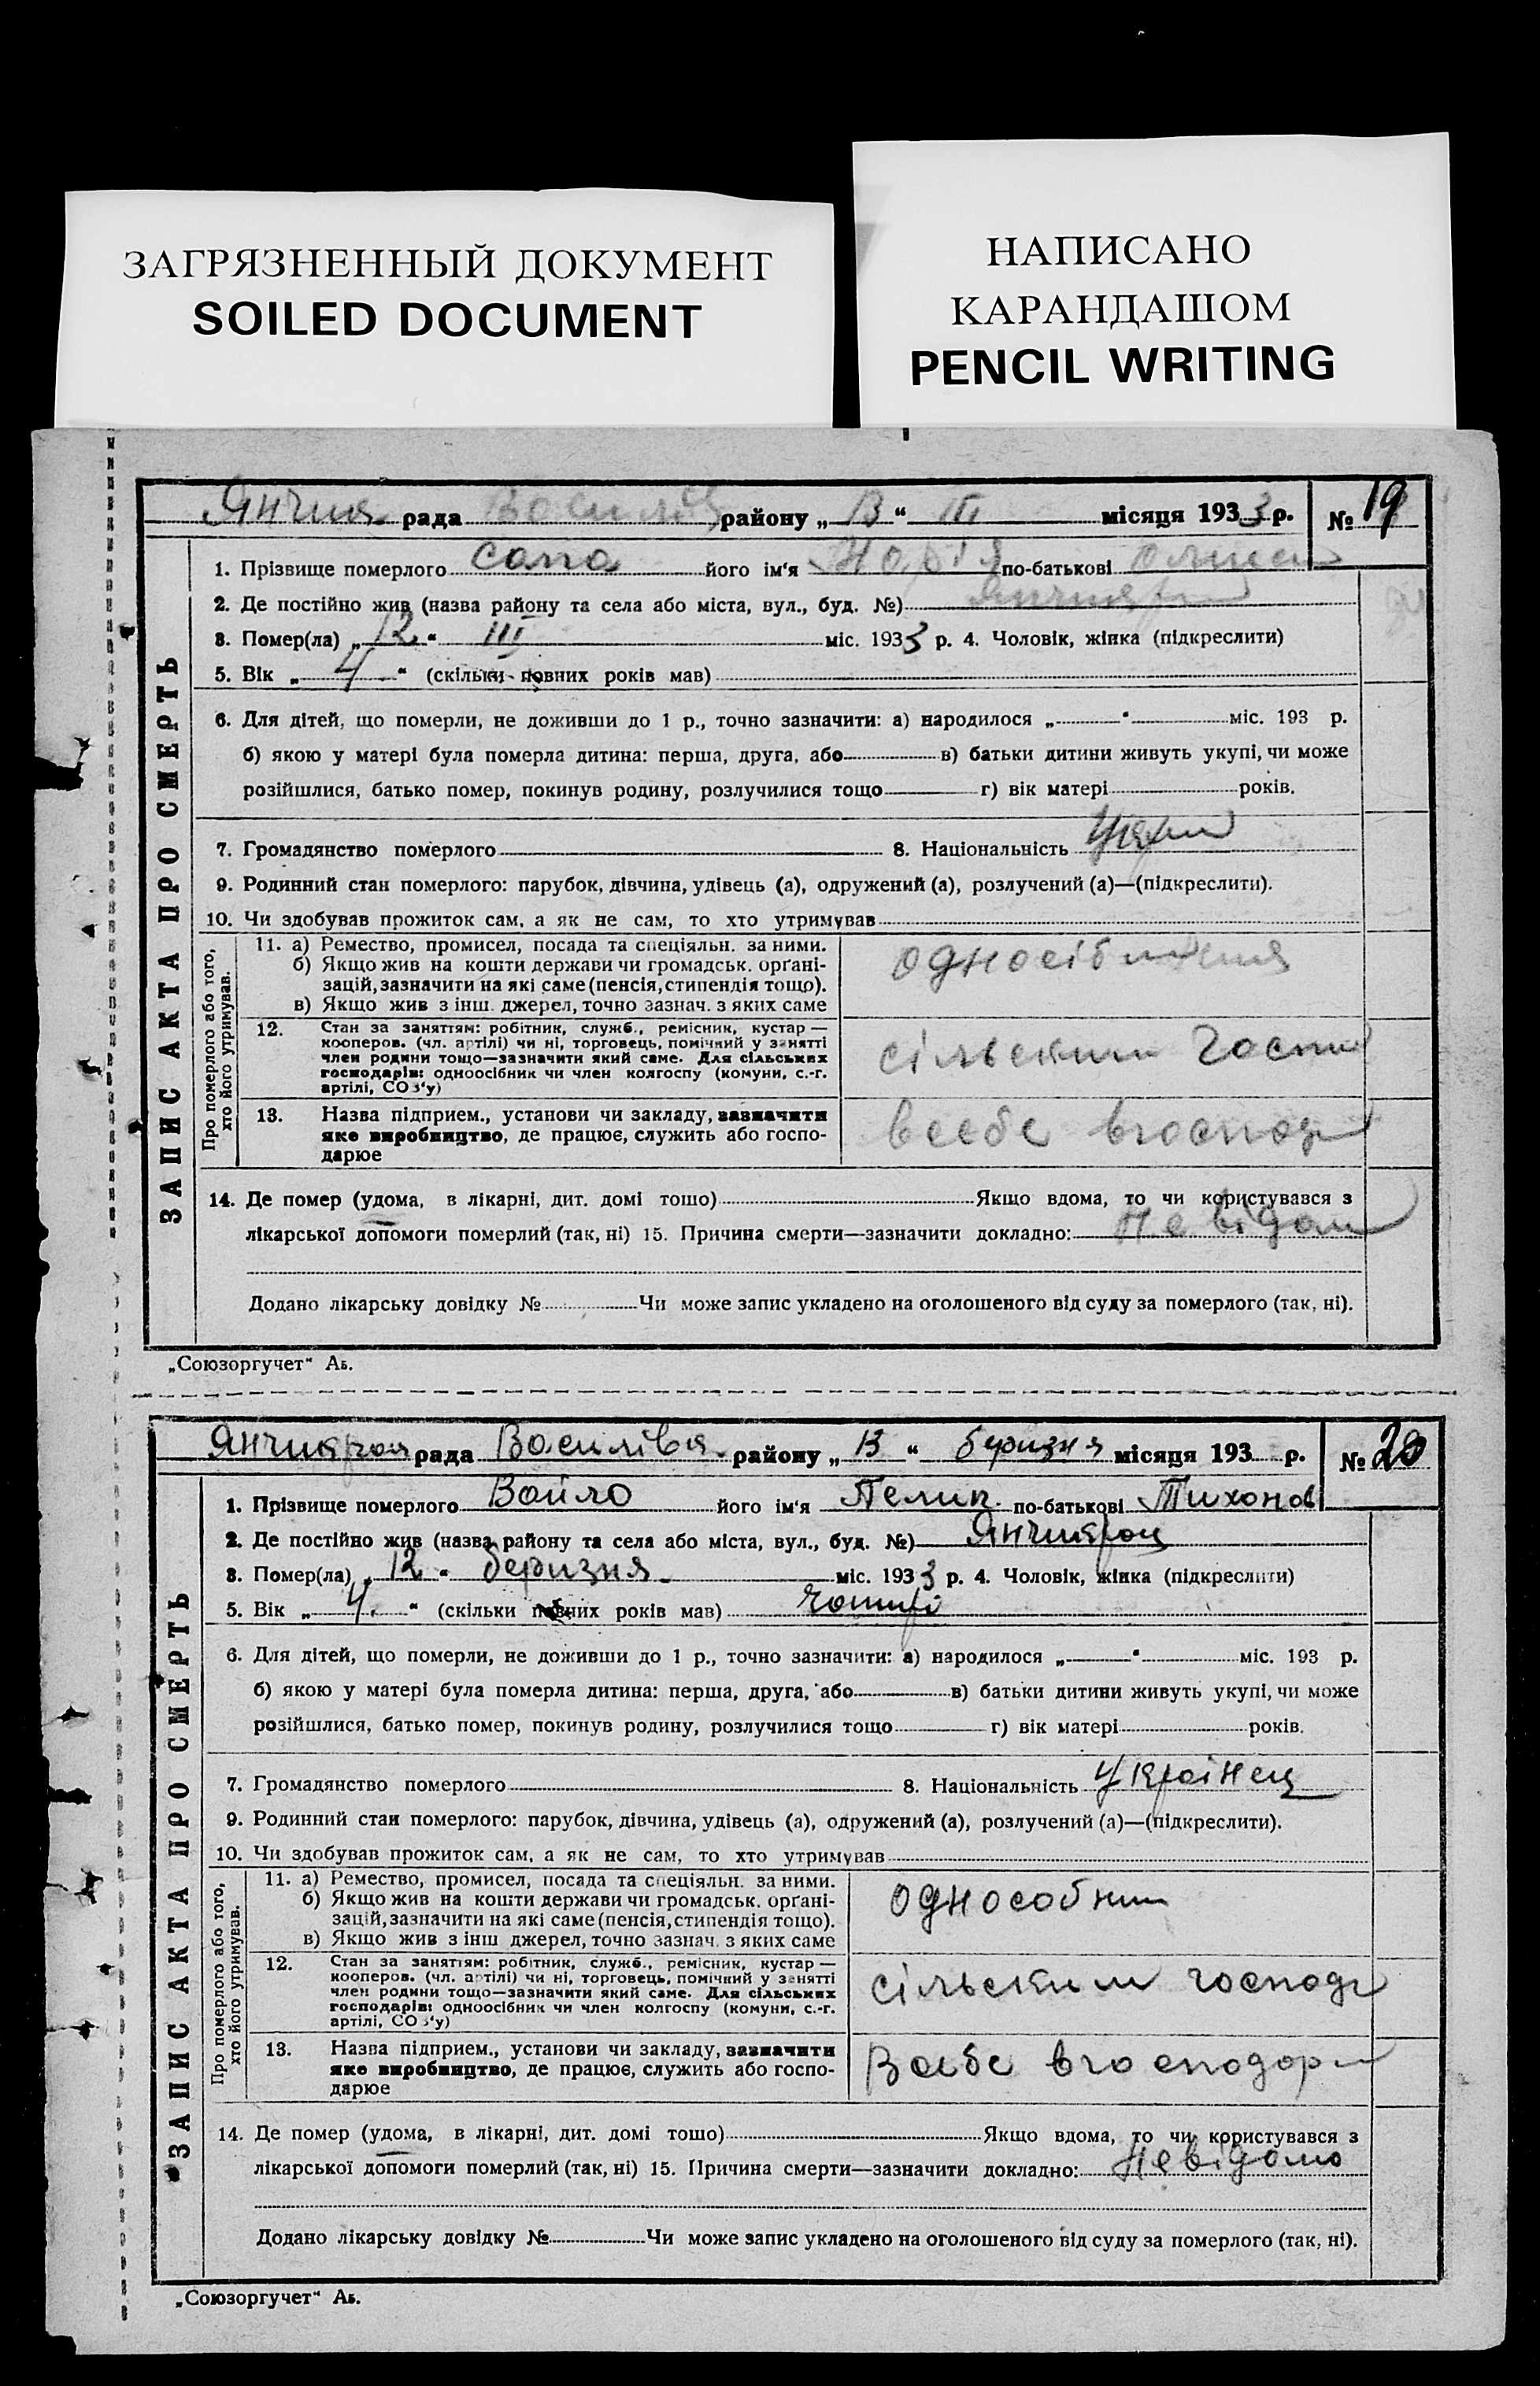 ЗАГРЯЗНЕННЫЙ ДОКУМЕНТ
SOILED DOCUMENT
НАПИСАНО
КАРАНДАШОМ
PENCIL WRITING
ЗАПИС АКТА ПРО СМЕРТЬ
рада району „13“ III місяця 1933 р. № 19
1. Прізвище померлого його ім'я по-батькові
2. Де постійно жив (назва району та села або міста, вул., буд. №)
3. Помер(ла) „12“ III міс. 1933 р. 4. Чоловік, жінка (підкреслити)
5. Вік „4“ (скільки повних років мав)
6. Для дітей, що померли, не доживши до 1 р., точно зазначити: а) народилося „ “ міс. 193 р.
б) якою у матері була померла дитина: перша, друга, або в) батьки дитини живуть укупі, чи може
розійшлися, батько помер, покинув родину, розлучилися тощо г) вік матері років.
7. Громадянство померлого 8. Національність
9. Родинний стан померлого: парубок, дівчина, удівець (а), одружений (а), розлучений (а)—(підкреслити).
10. Чи здобував прожиток сам, а як не сам, то хто утримував
Про померлого або того, хто його утримував.
11. а) Ремество, промисел, посада та спеціяльн. за ними.
б) Якщо жив на кошти держави чи громадськ. орґані-
зацій, зазначити на які саме (пенсія, стипендія тощо).
в) Якщо жив з інш. джерел, точно зазнач. з яких саме
12. Стан за заняттям: робітник, служб., ремісник, кустар —
кооперов. (чл. артілі) чи ні, торговець, помічний у занятті
член родини тощо—зазначити який саме. Для сільських
господарів: одноосібник чи член колгоспу (комуни, с.-г.
артілі, СОЗ'у)
13. Назва підприєм., установи чи закладу, зазначити
яке виробництво, де працює, служить або госпо-
дарює
14. Де помер (удома, в лікарні, дит. домі тощо) Якщо вдома, то чи користувався з
лікарської допомоги померлий (так, ні) 15. Причина смерти—зазначити докладно:
Додано лікарську довідку № Чи може запис укладено на оголошеного від суду за померлого (так, ні).
„Союзоргучет“ Аь.
ЗАПИС АКТА ПРО СМЕРТЬ
рада району „13“ беризня місяця 193 р. № 20
1. Прізвище померлого Войло його ім'я по-батькові Тихонов
2. Де постійно жив (назва району та села або міста, вул., буд. №)
3. Помер(ла) „12“ беризня міс. 1933 р. 4. Чоловік, жінка (підкреслити)
5. Вік „4.“ (скільки повних років мав)
6. Для дітей, що померли, не доживши до 1 р., точно зазначити: а) народилося „ “ міс. 193 р.
б) якою у матері була померла дитина: перша, друга, або в) батьки дитини живуть укупі, чи може
розійшлися, батько помер, покинув родину, розлучилися тощо г) вік матері років.
7. Громадянство померлого 8. Національність українец
9. Родинний стан померлого: парубок, дівчина, удівець (а), одружений (а), розлучений (а)—(підкреслити).
10. Чи здобував прожиток сам, а як не сам, то хто утримував
Про померлого або того, хто його утримував.
11. а) Ремество, промисел, посада та спеціяльн. за ними.
б) Якщо жив на кошти держави чи громадськ. орґані-
зацій, зазначити на які саме (пенсія, стипендія тощо).
в) Якщо жив з інш джерел, точно зазнач. з яких саме
12. Стан за заняттям: робітник, служб., ремісник, кустар —
кооперов. (чл. артілі) чи ні, торговець, помічний у занятті
член родини тощо—зазначити який саме. Для сільських
господарів: одноосібник чи член колгоспу (комуни, с.-г.
артілі, СОЗ'у)
13. Назва підприєм., установи чи закладу, зазначити
яке виробництво, де працює, служить або госпо-
дарює
14. Де помер (удома, в лікарні, дит. домі тощо) Якщо вдома, то чи користувався з
лікарської допомоги померлий (так, ні) 15. Причина смерти—зазначити докладно: Невідомо
Додано лікарську довідку № Чи може запис укладено на оголошеного від суду за померлого (так, ні).
„Союзоргучет“ Аь.